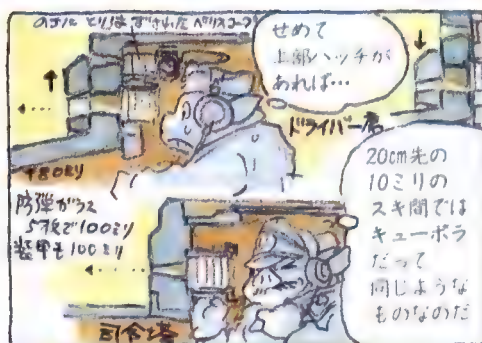 のちに とりはずされた ペリスコープ
せめて
上部ハッチが
あれば…
ドライバー君
+80ミリ
防弾ガラス
5枚で100ミリ
装甲も100ミリ
20cm先の
10ミリの
スキ間では
キューポラ
だって
同じような
ものなのだ
司令塔